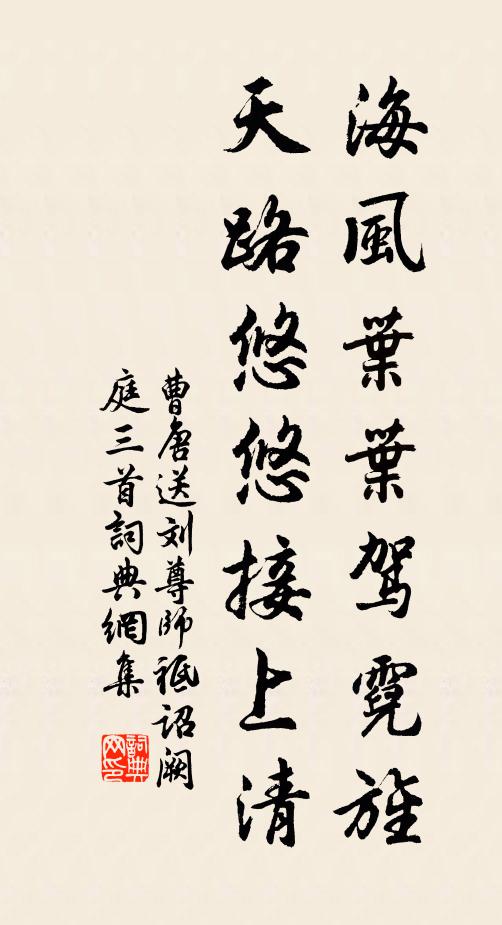 海風葉葉駕霓旌
天路悠悠接上清
曹唐送刘尊師祗诏阙
庭三首詞典網集
詞典
网印